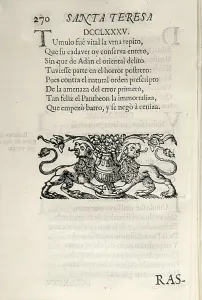 270 SANTA TERESA
DCCLXXXV.
Tumulo fuè vital la vrna repito,
Que su cadaver oy conserva entero,
Sin que de Adàn el oriental delito
Tuviesse parte en el horror postrero:
Pues contra el natural orden prescripto
De la amenaza del error primero,
Tan feliz el Pantheon la immortaliza,
Que empezò barro, y se negò à ceniza.
RAS-